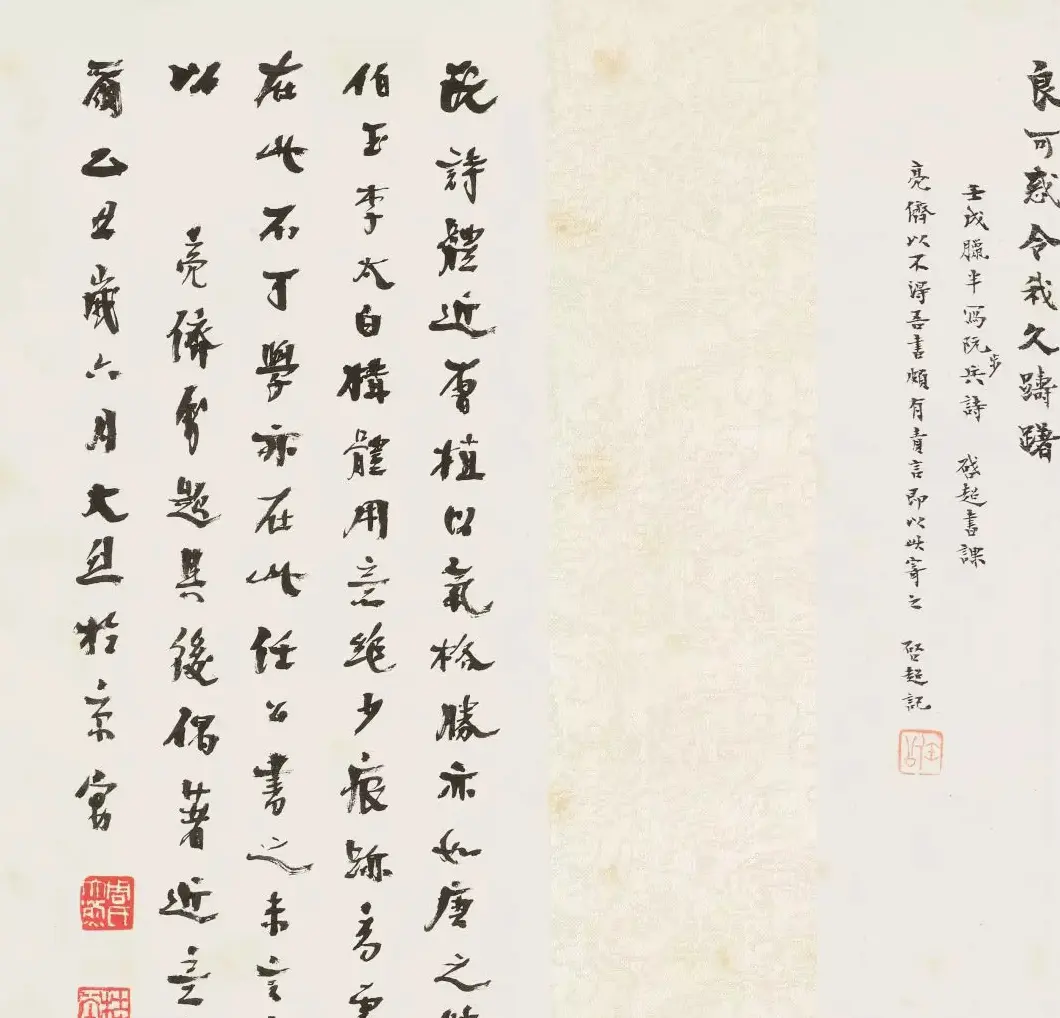 良可惑令我久躊躇
壬戌臘半寫阮步兵詩 啟超書課
亮儕以不得吾書頗有責言即以此寄之 啓超記
阮詩體近曹植以氣格勝亦如唐之陳
伯玉李太白構體用意絶少痕跡高處
在此不可學亦在此任公書之未言
以 亮儕身題其後偶著近意
爾乙丑歲六月大烈於京寓